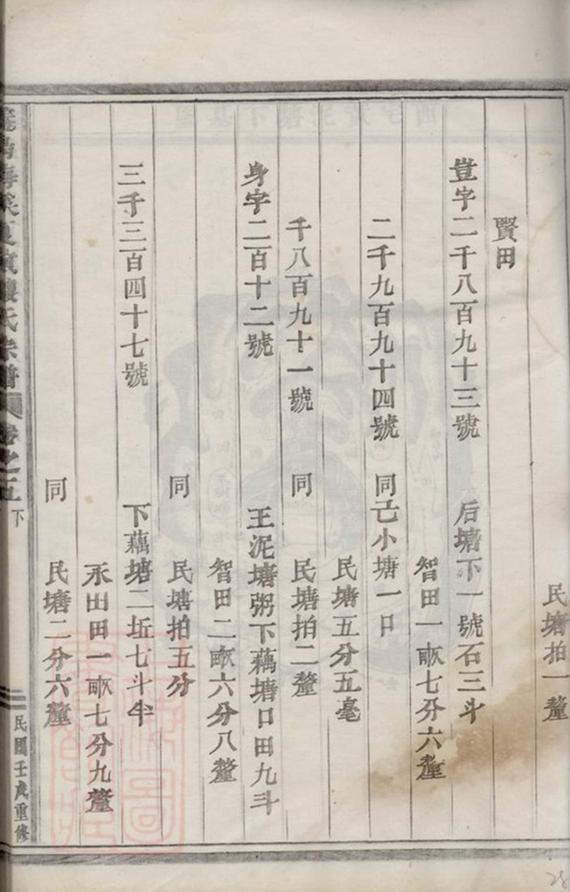 民塘拍一釐
賢田
豈字二千八百九十三號 后塘下一號石三斗
智田一畝七分六釐
二千九百九十四號 同己小塘一口
民塘五分五毫
千八百九十一號 同 民塘拍二釐
身字二百十二號 王泥塘粥下藕塘口田九斗
智田二畝六分八釐
同 民塘拍五分
三千三百四十七號 下藕塘二坵七斗半
永田田一畝七分九釐
同 民塘二分六釐
氏宗譜 卷之五 下
民國壬戌重修